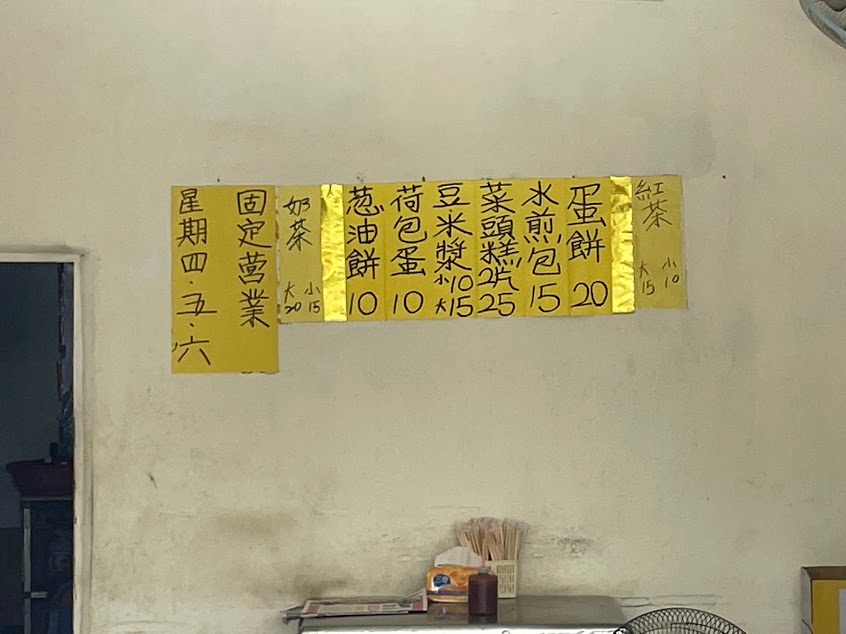 紅茶
小10
大15
蛋餅 20
水煎包 15
菜頭糕 2片 25
豆米漿 小10 大15
荷包蛋 10
葱油餅 10
奶茶
小15
大20
固定營業
星期四.五.六